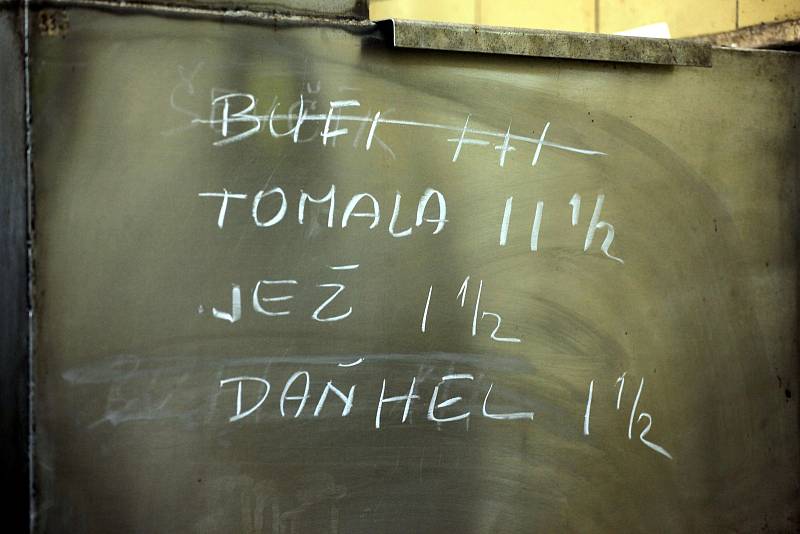 TOMALA 11 1/2
JEŽ 1 1/2
DAŇHEL 1 1/2